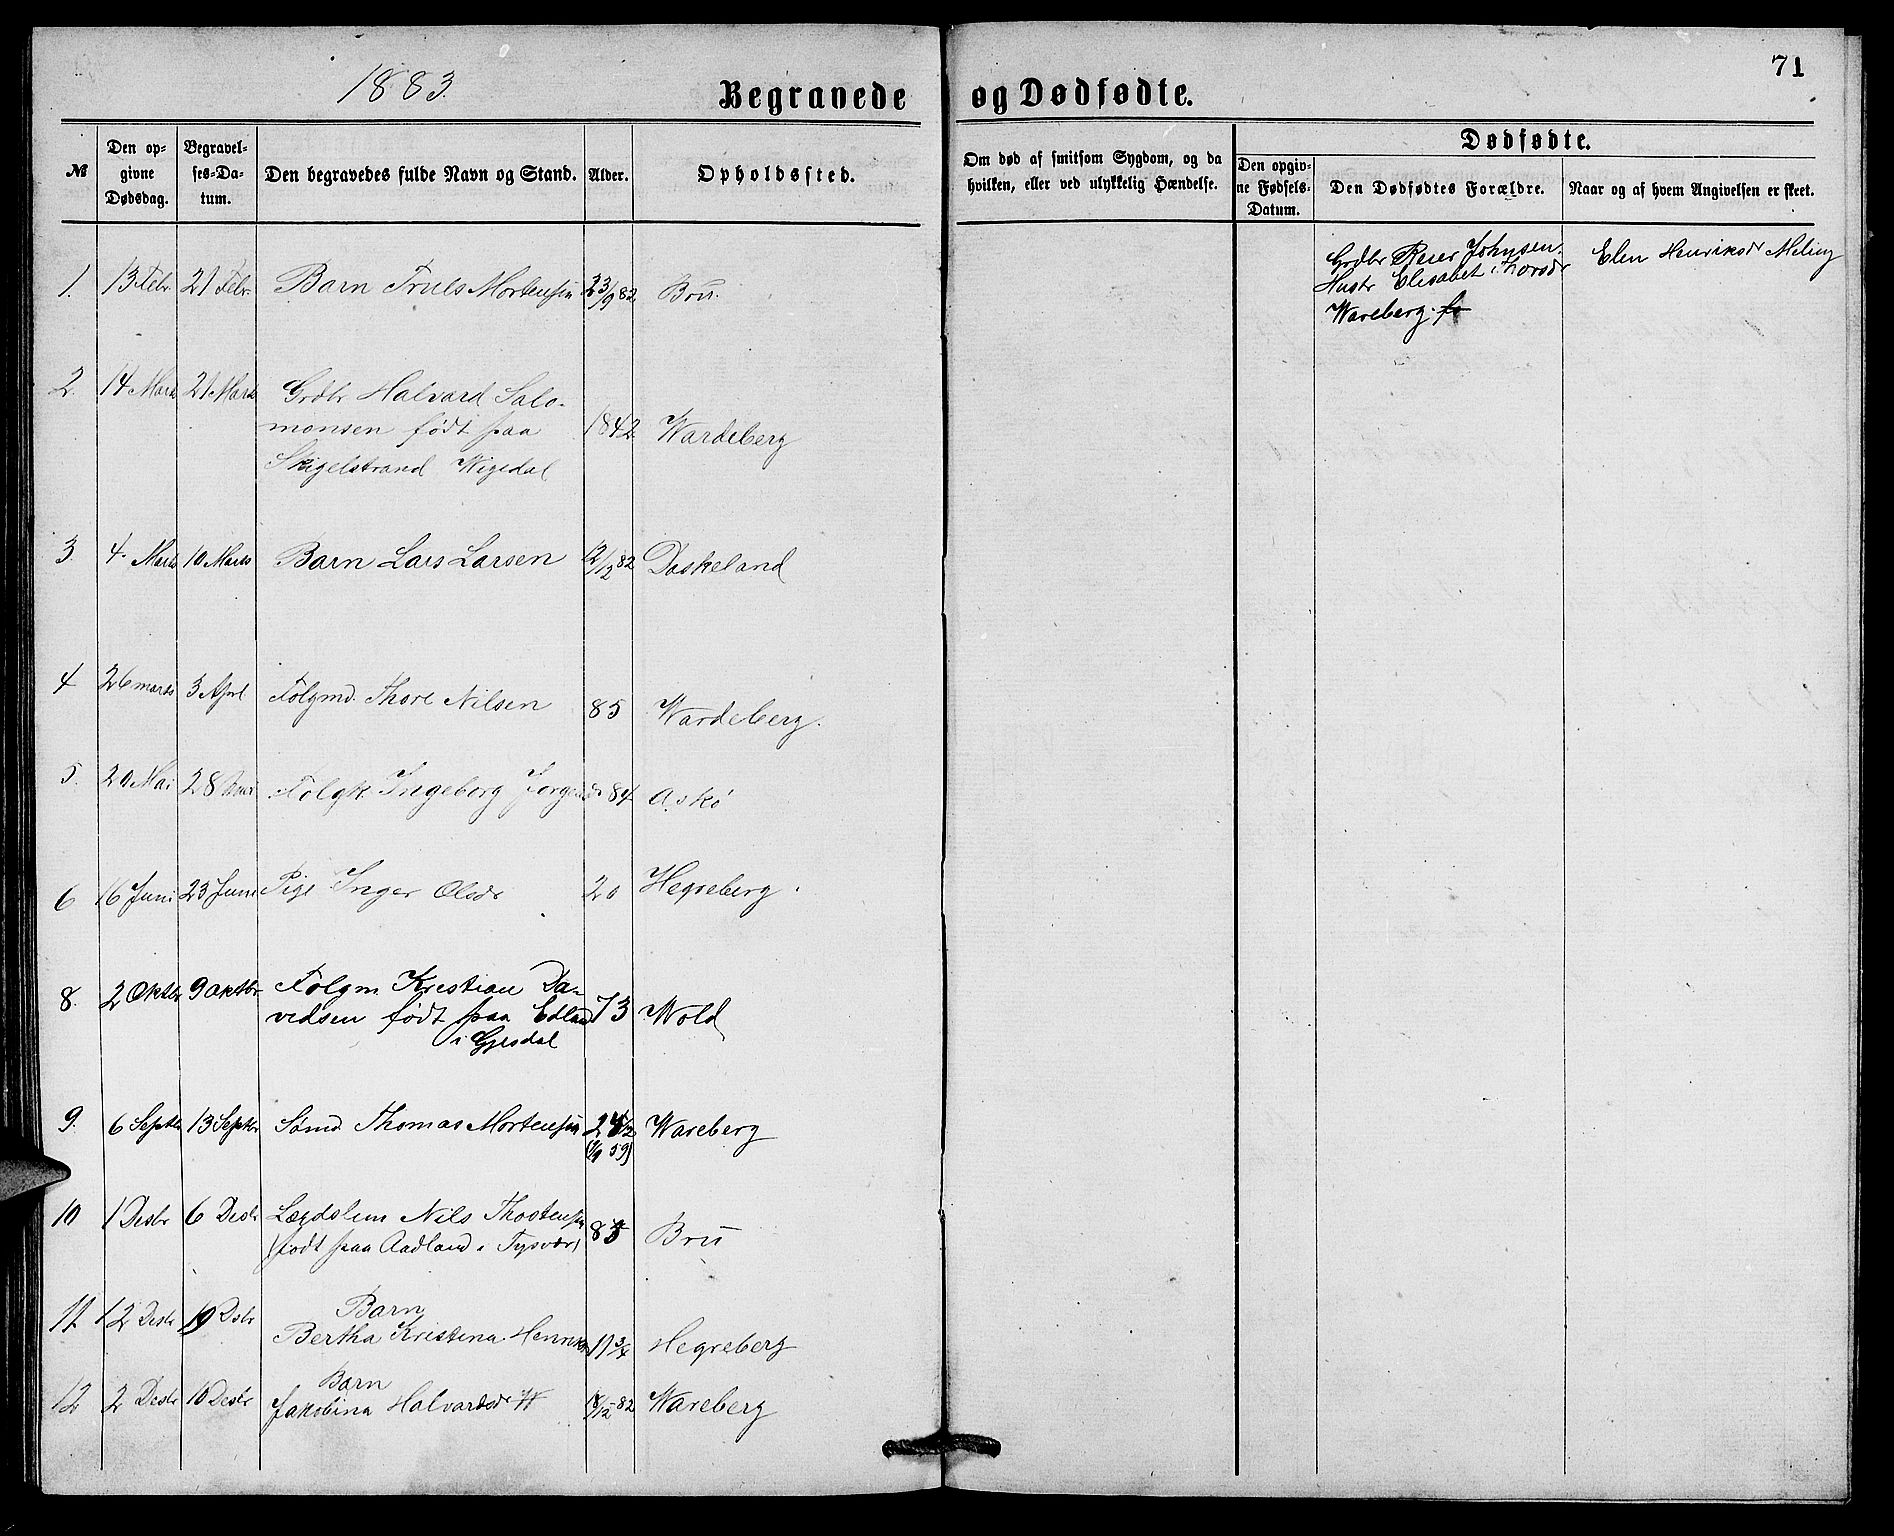 1883.
Begravede og Dødfødte.
71
№
Den opgivne Dødsdag.
Begravelses-Datum.
Den begravedes fulde Navn og Stand.
Alder.
Opholdssted.
Om død af smitsom Sygdom, og da hvilken, eller ved ulykkelig Hændelse.
Dødfødte.
Den opgivne Fødsels-Datum.
Den Dødfødtes Forældre.
Naar og af hvem Angivelsen er skeet.
1. 13 Febr. 21 Febr. Barn Truls Mortensen 23/9 82 Bru.
Grdbr Reier Johnsen
Hustr Elisabet Thorsdr
Wareberg
Elen Henriksdr Meling
2. 14 Marts 21 Marts Grdbr Halvard Salo-
monsen født paa 1842 Wardeberg
Skigelstrand Wigedal
3. 4. Marts 10 Marts Barn Lars Larsen 12/12 82 Daskeland
4 26 marts 3 April Folgmd. Thore Nilsen 85 Wardeberg.
5. 20 Mai 28 Mai Folgk Ingeborg 84 Askø
6 16 Juni 23 Juni Pige Inger Olsdr 20 Hegreberg
8. 2 Oktbr 9 Oktbr Folgm Kristian Da-
vedsen født paa Edland 73 Wold
i Gjesdal
9. 6 Septbr 13 Septbr Sømd Thomas Mortensen 24 1/2 Wareberg
59)
10 1 Desbr 6 Desbr Lægdslem Nils Thostensen
(født paa Aadland i Tysvær) 85 Bru
11 12 Desbr 19 Dsbr Barn
Bertha Kristina 11 3/4 Hegreberg
12 2 Desbr 10 Desbr Barn
Jakobina Halvardsdr W 18/12 82 Wareberg